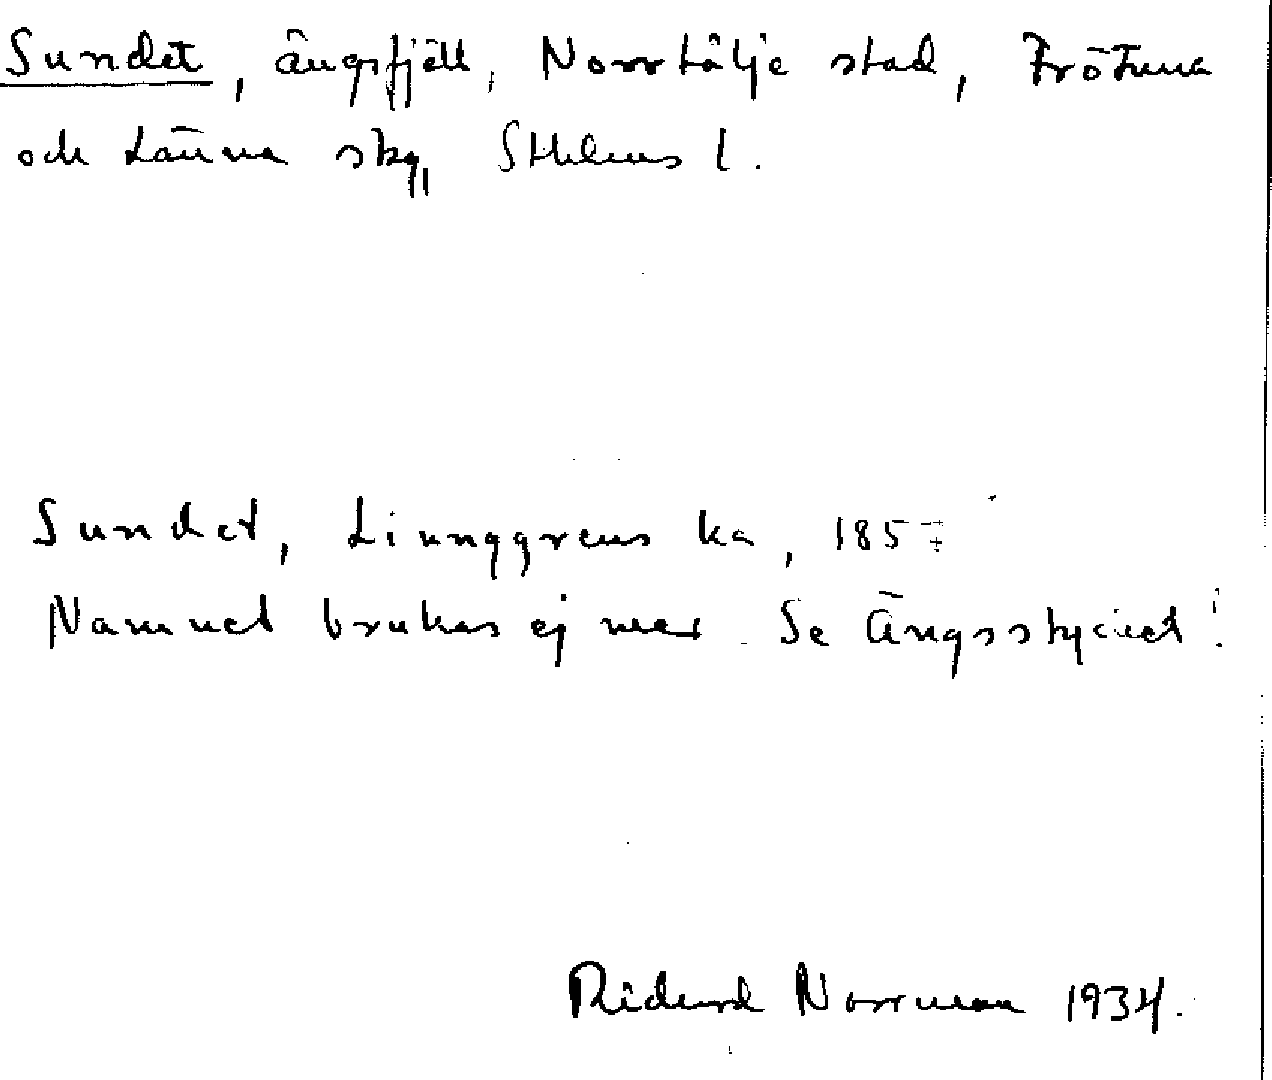 Sundet, ängsfjäll, Norrtälje stad, Frötuna
och Länna skg, Sthlms l.
Sundet, Ljunggrens ka, 1857
Namnet brukas ej mer. Se Ängsstycket!
Rickard Norrman 1934.